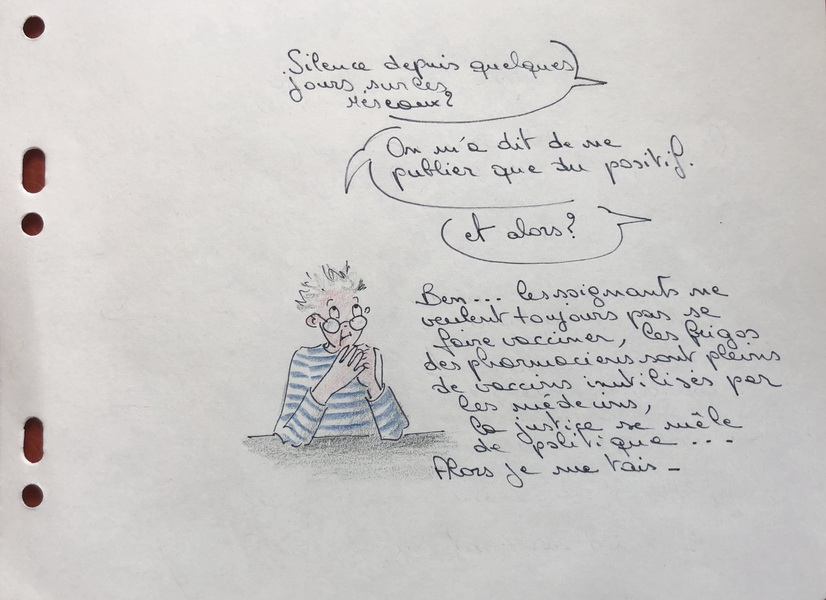 Silence depuis quelques
jours sur les
réseaux?
On m'a dit de ne
publier que du positif.
et alors?
Ben... les soignants ne
veulent toujours pas se
faire vacciner, les frigos
des pharmaciens sont pleins
de vaccins inutilisés par
les médecins,
la justice se mêle
de politique ...
Alors je me tais -